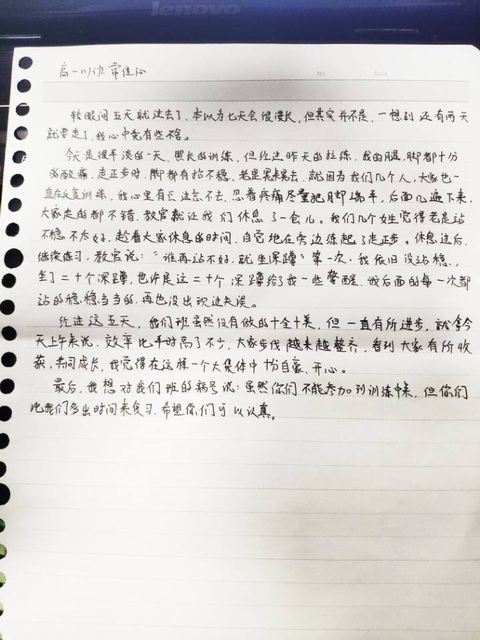 lenovo
高一(1)班 常佳
No.
Date
转眼间五天就过去了,本以为七天会很漫长,但其实并不是,一想到还有两天
就要走了,我心中竟有些不舍。
今天是很平淡的一天,照常的训练,但经过昨天的拉练,我的腿、脚都十分
的酸痛,走正步时,脚都有抬不稳,老是晃来晃去,就因为我们几个人,大家也一
直在反复训练,我心里有些过意不去,忍着疼痛尽量把脚端平,后面几遍下来,
大家走的都不错,教官就让我们休息了一会儿。我们几个女生觉得老是站
不稳不太好,趁着大家休息的时间,自觉地在旁边练起了走正步。休息过后,
继续练习,教官说:“谁再站不好,就坐深蹲”第一次,我依旧没站稳,
坐了二十个深蹲,也许是这二十个深蹲给了我一些警醒,我后面的每一次都
站的稳稳当当的,再也没出现过失误。
经过这五天,我们班虽然没有做的十全十美,但一直有所进步,就拿今
天上午来说,效率比平时高了不少,大家步伐越来越整齐,看到大家有所收
获,共同成长,我觉得在这样一个大集体中十分自豪、开心。
最后,我想对我们班的病号说:虽然你们不能参加到训练中来,但你们
比我们多出时间来复习,希望你们可以认真。